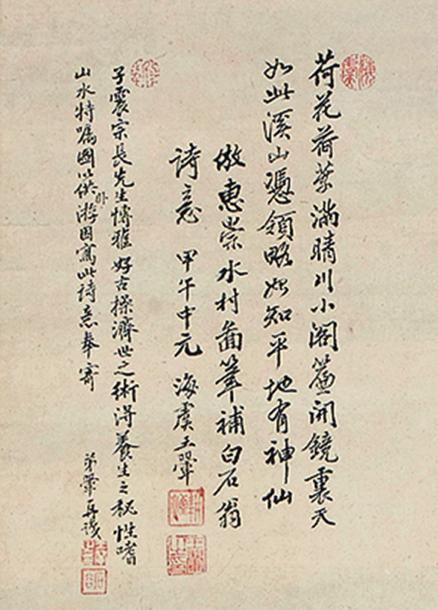 荷花荷葉滿晴川小閣簾開鏡裏天
如此溪山憑領略始知平地有神仙
倣惠崇水村啚筆補白石翁
詩意 甲午中元 海虞王翬
子震宗長先生博雅好古操濟世之術得養生之秘性嗜
山水特囑圖以供卧游因寫此詩意奉寄
弟翬再識